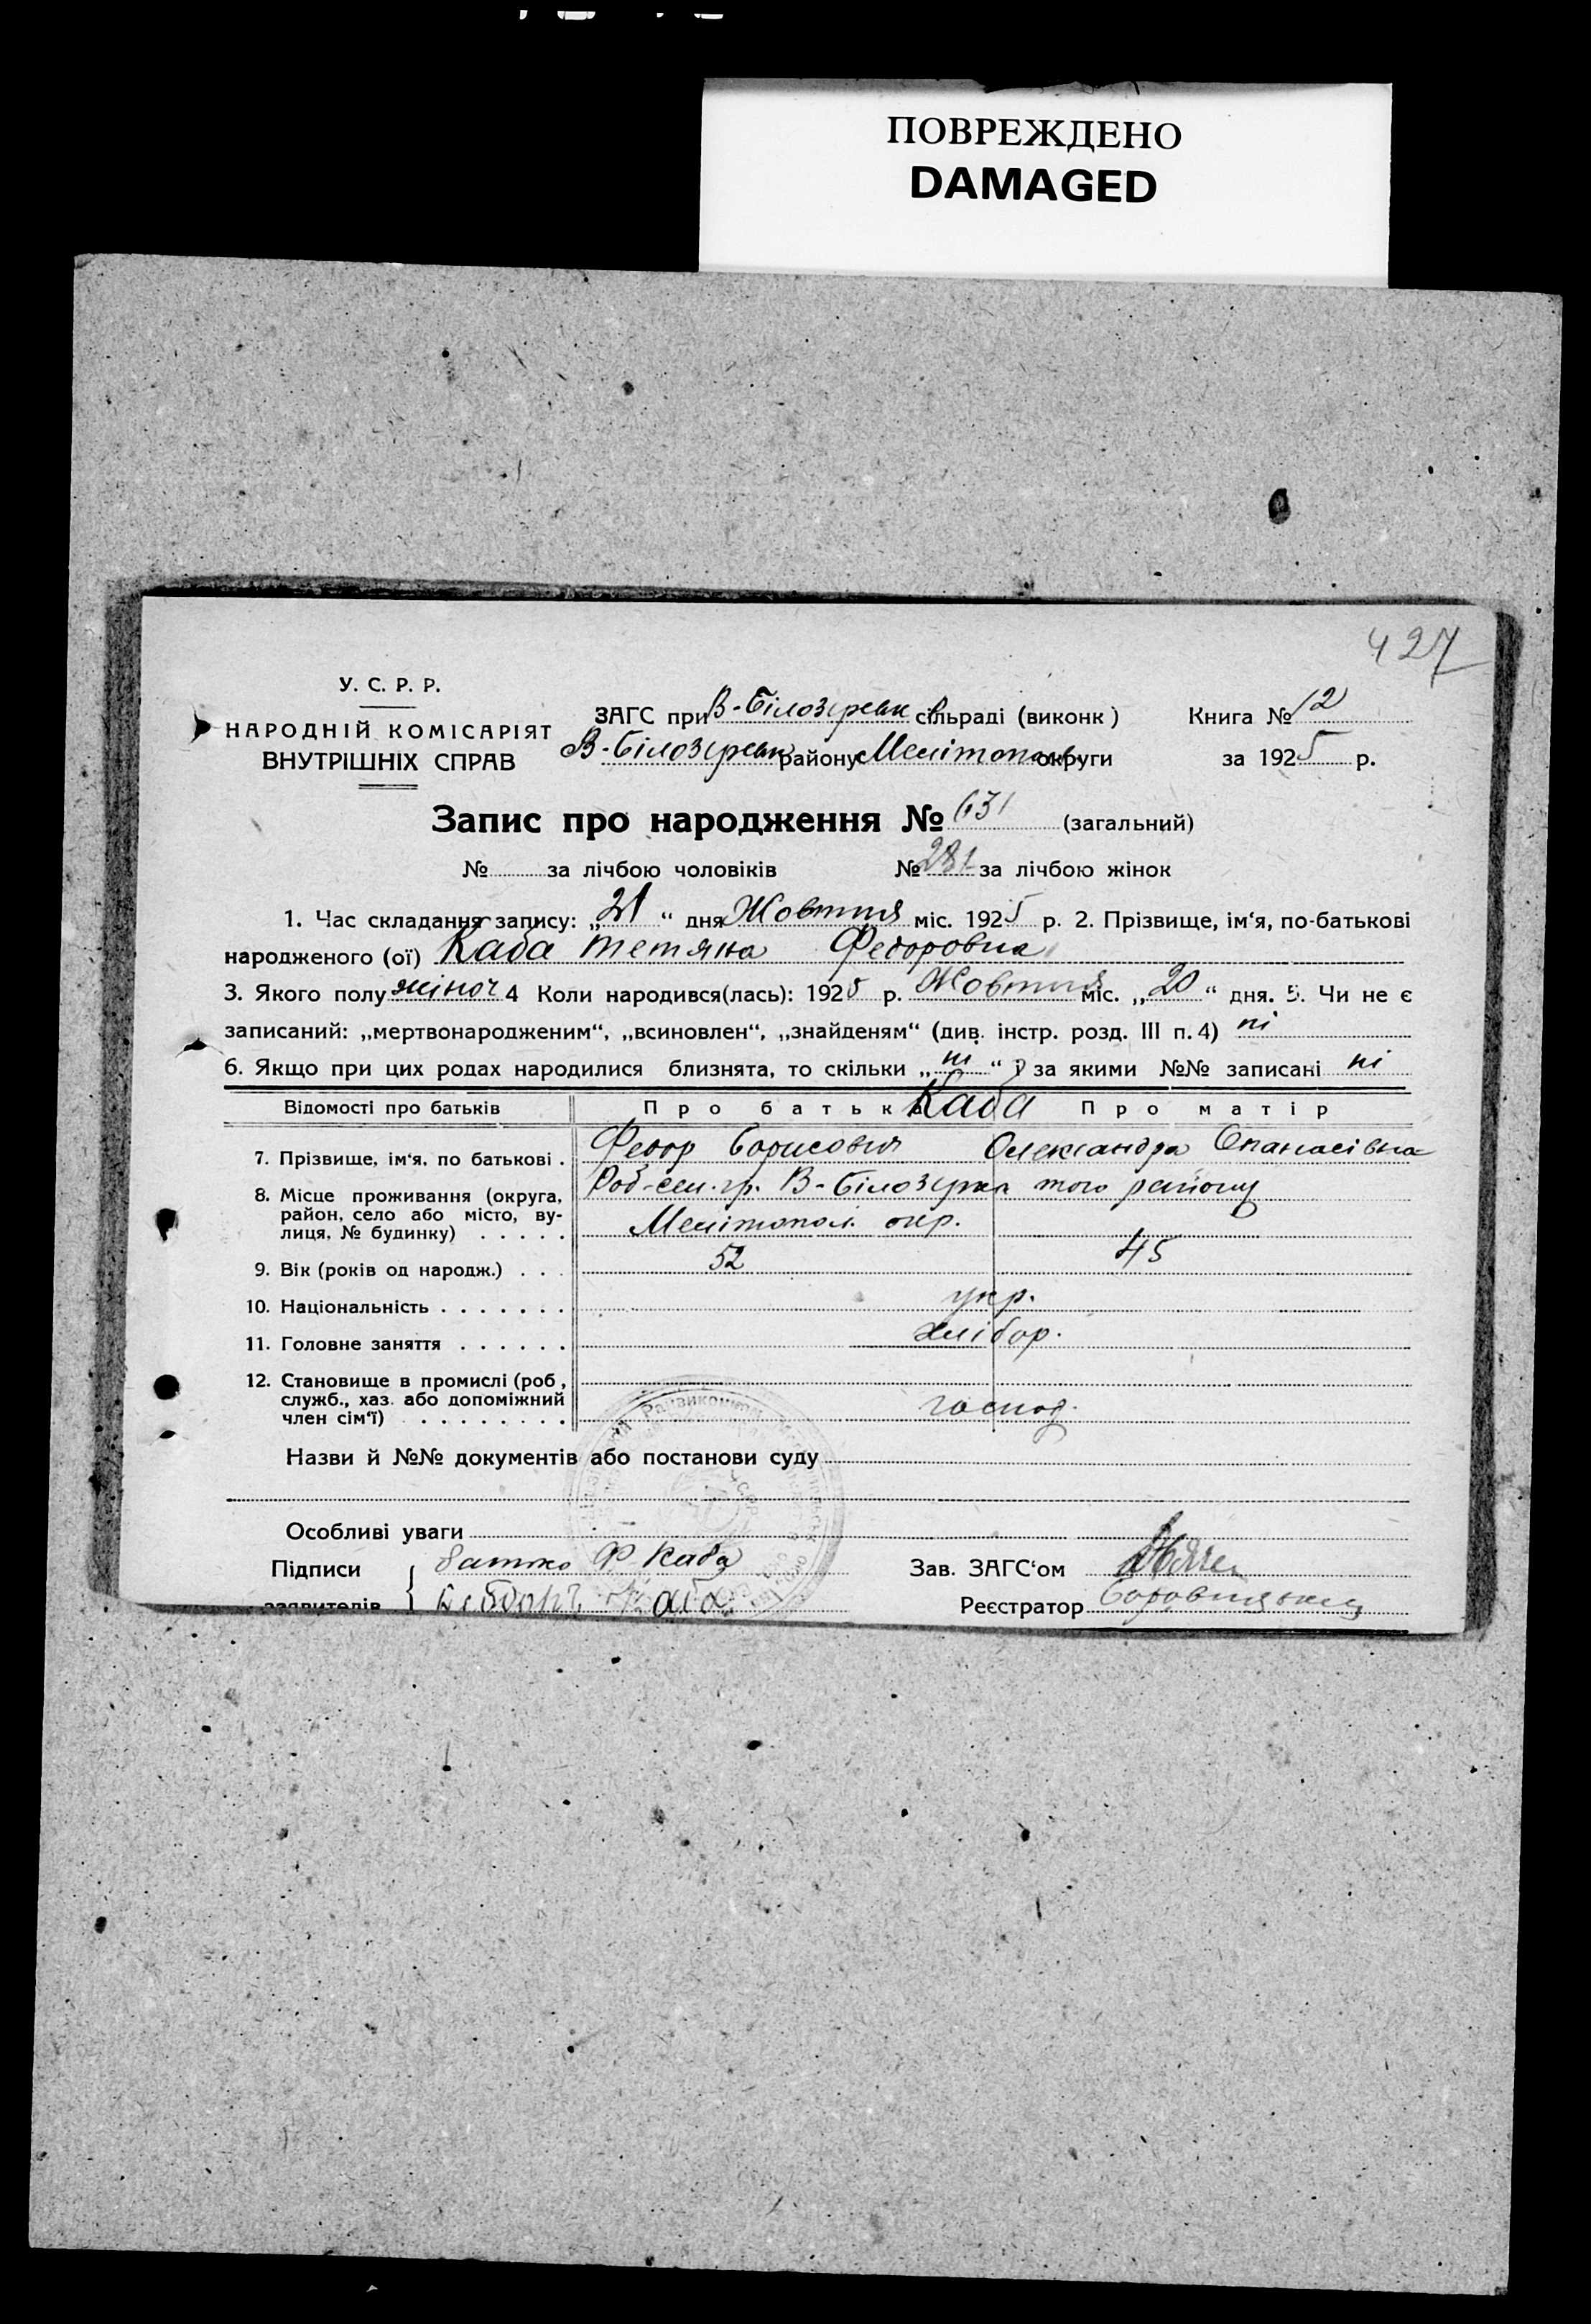 ПОВРЕЖДЕНО
DAMAGED
427
У. С. Р. Р.
НАРОДНІЙ КОМІСАРІЯТ
ВНУТРІШНІХ СПРАВ
ЗАГС при В-Білозерськ сільраді (виконк)
Книга № 12
В-Білозерськ району Мелітопольс округи
за 1925 р.
Запис про народження № 631 (загальний)
№ за лічбою чоловіків № 281 за лічбою жінок
1. Час складання запису: „21“ дня Жовтня міс. 1925 р. 2. Прізвище, ім'я, по-батькові
народженого (ої) Каба Тетяна Федоровна
3. Якого полу жіноч 4 Коли народився(лась): 1925 р. Жовтня міс. „20“ дня. 5. Чи не є
записаний: „мертвонародженим“, „всиновлен“, „знайденям“ (див. інстр. розд. III п. 4) ні
6. Якщо при цих родах народилися близнята, то скільки „ні“ і за якими №№ записані ні
Відомості про батьків Про батька Каба Про матір
7. Прізвище, ім'я, по батькові . Федор Борисович Олександра Опанасівна
8. Місце проживання (округа,
район, село або місто, ву-
лиця, № будинку) . . . . .
В-Білозерка того району
Мелітопол. окр.
9. Вік (років од народж.) . . . 52 45
10. Національність . . . . . . . укр.
11. Головне заняття . . . . . . хлібор.
12. Становище в промислі (роб,
служб., хаз. або допоміжний
член сім'ї) . . . . . . . . господ.
Назви й №№ документів або постанови суду
Особливі уваги
Підписи
заявителів
батько Ф Каба
Каба
Зав. ЗАГС'ом
Реєстратор